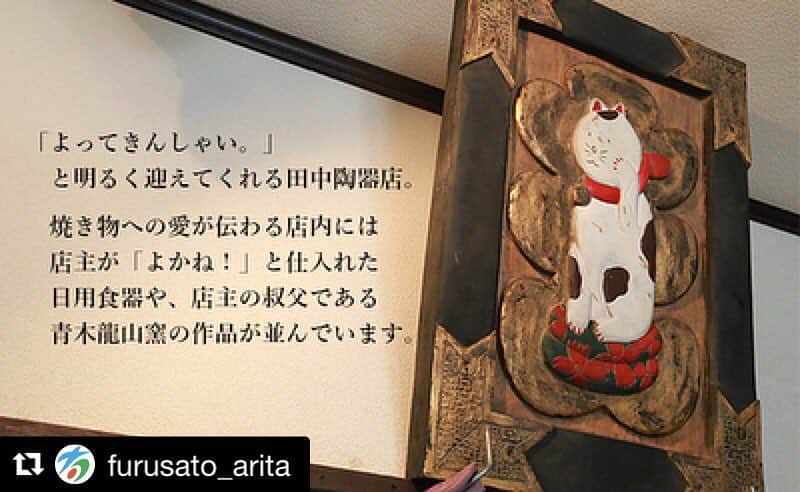 「よってきんしゃい。」
と明るく迎えてくれる田中陶器店。
焼き物への愛が伝わる店内には
店主が「よかね！」と仕入れた
日用食器や、店主の叔父である
青木龍山窯の作品が並んでいます。
furusato_arita